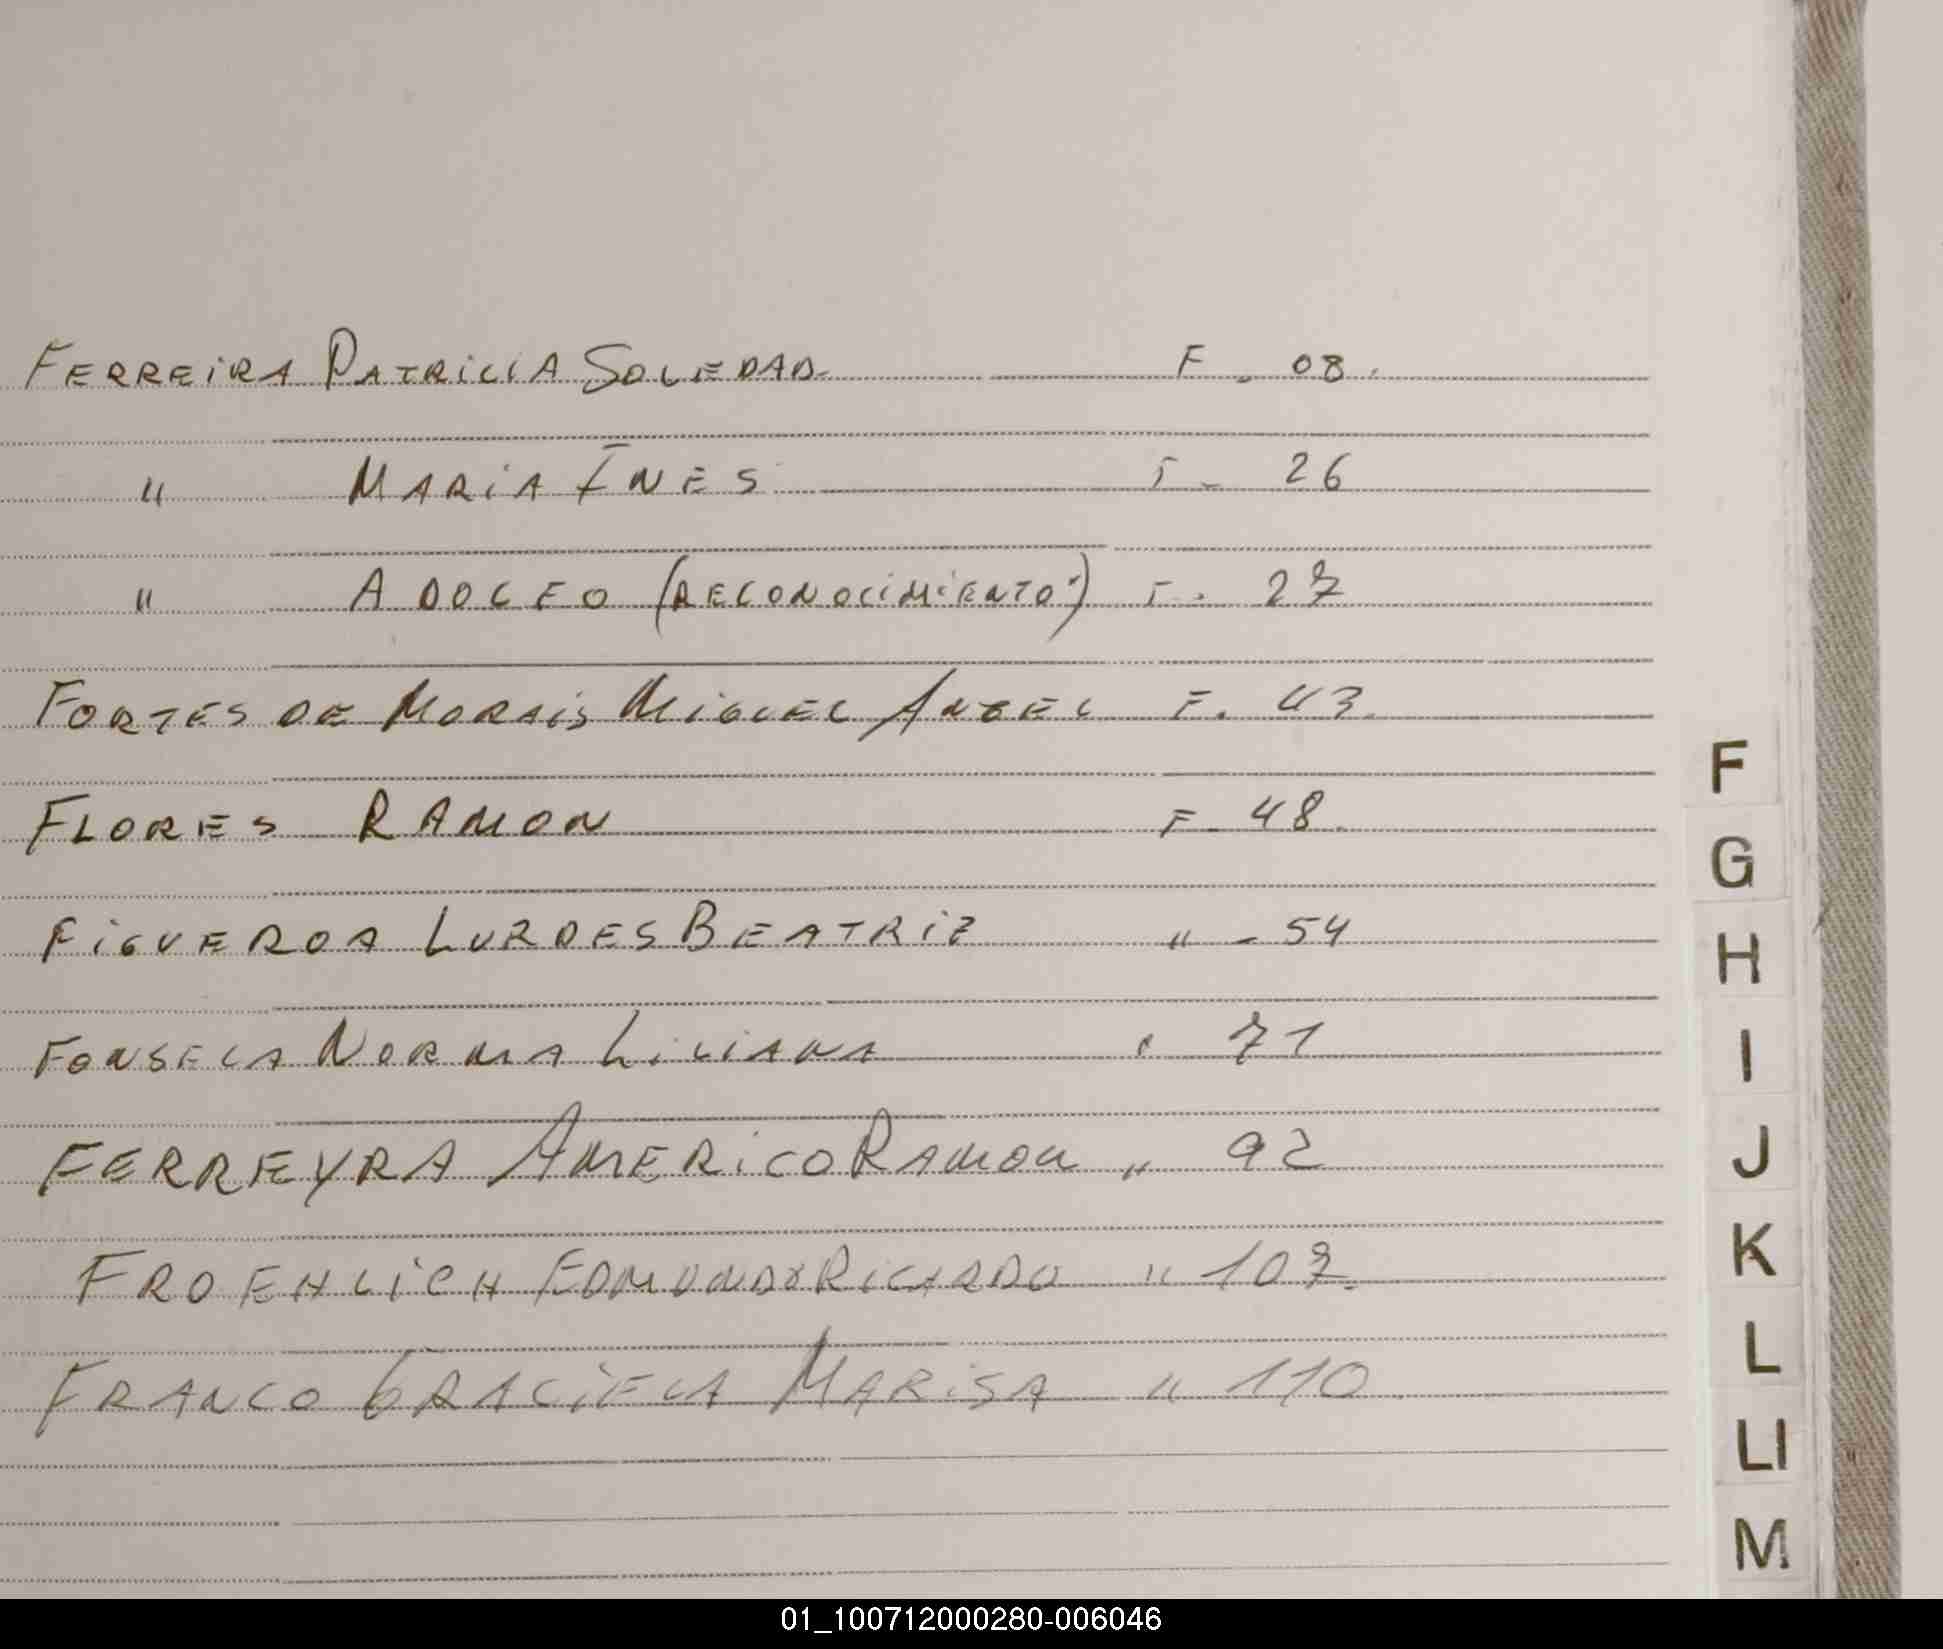 FERREiRA PATRICIA SOLEDAD. F. 08.
" MARiA INES F. 26
" ADOLFO (RECONOCIMIENTO) F. 27
FORTES DE MORAiS MiGUEL ANGEL F. 43.
FLORES RAMON F. 48.
FiGUEROA LURDES BEATRiZ " - 54
FONSECA NORMA LiLIANA " 71
FERREYRA AMERiCO RAMON " 92
FROEHLiCH EDMUNDO RICARDO " 107.
FRANCO GRACiELA MARiSA " 110
F
G
H
I
J
K
L
Ll
M
01_100712000280-006046